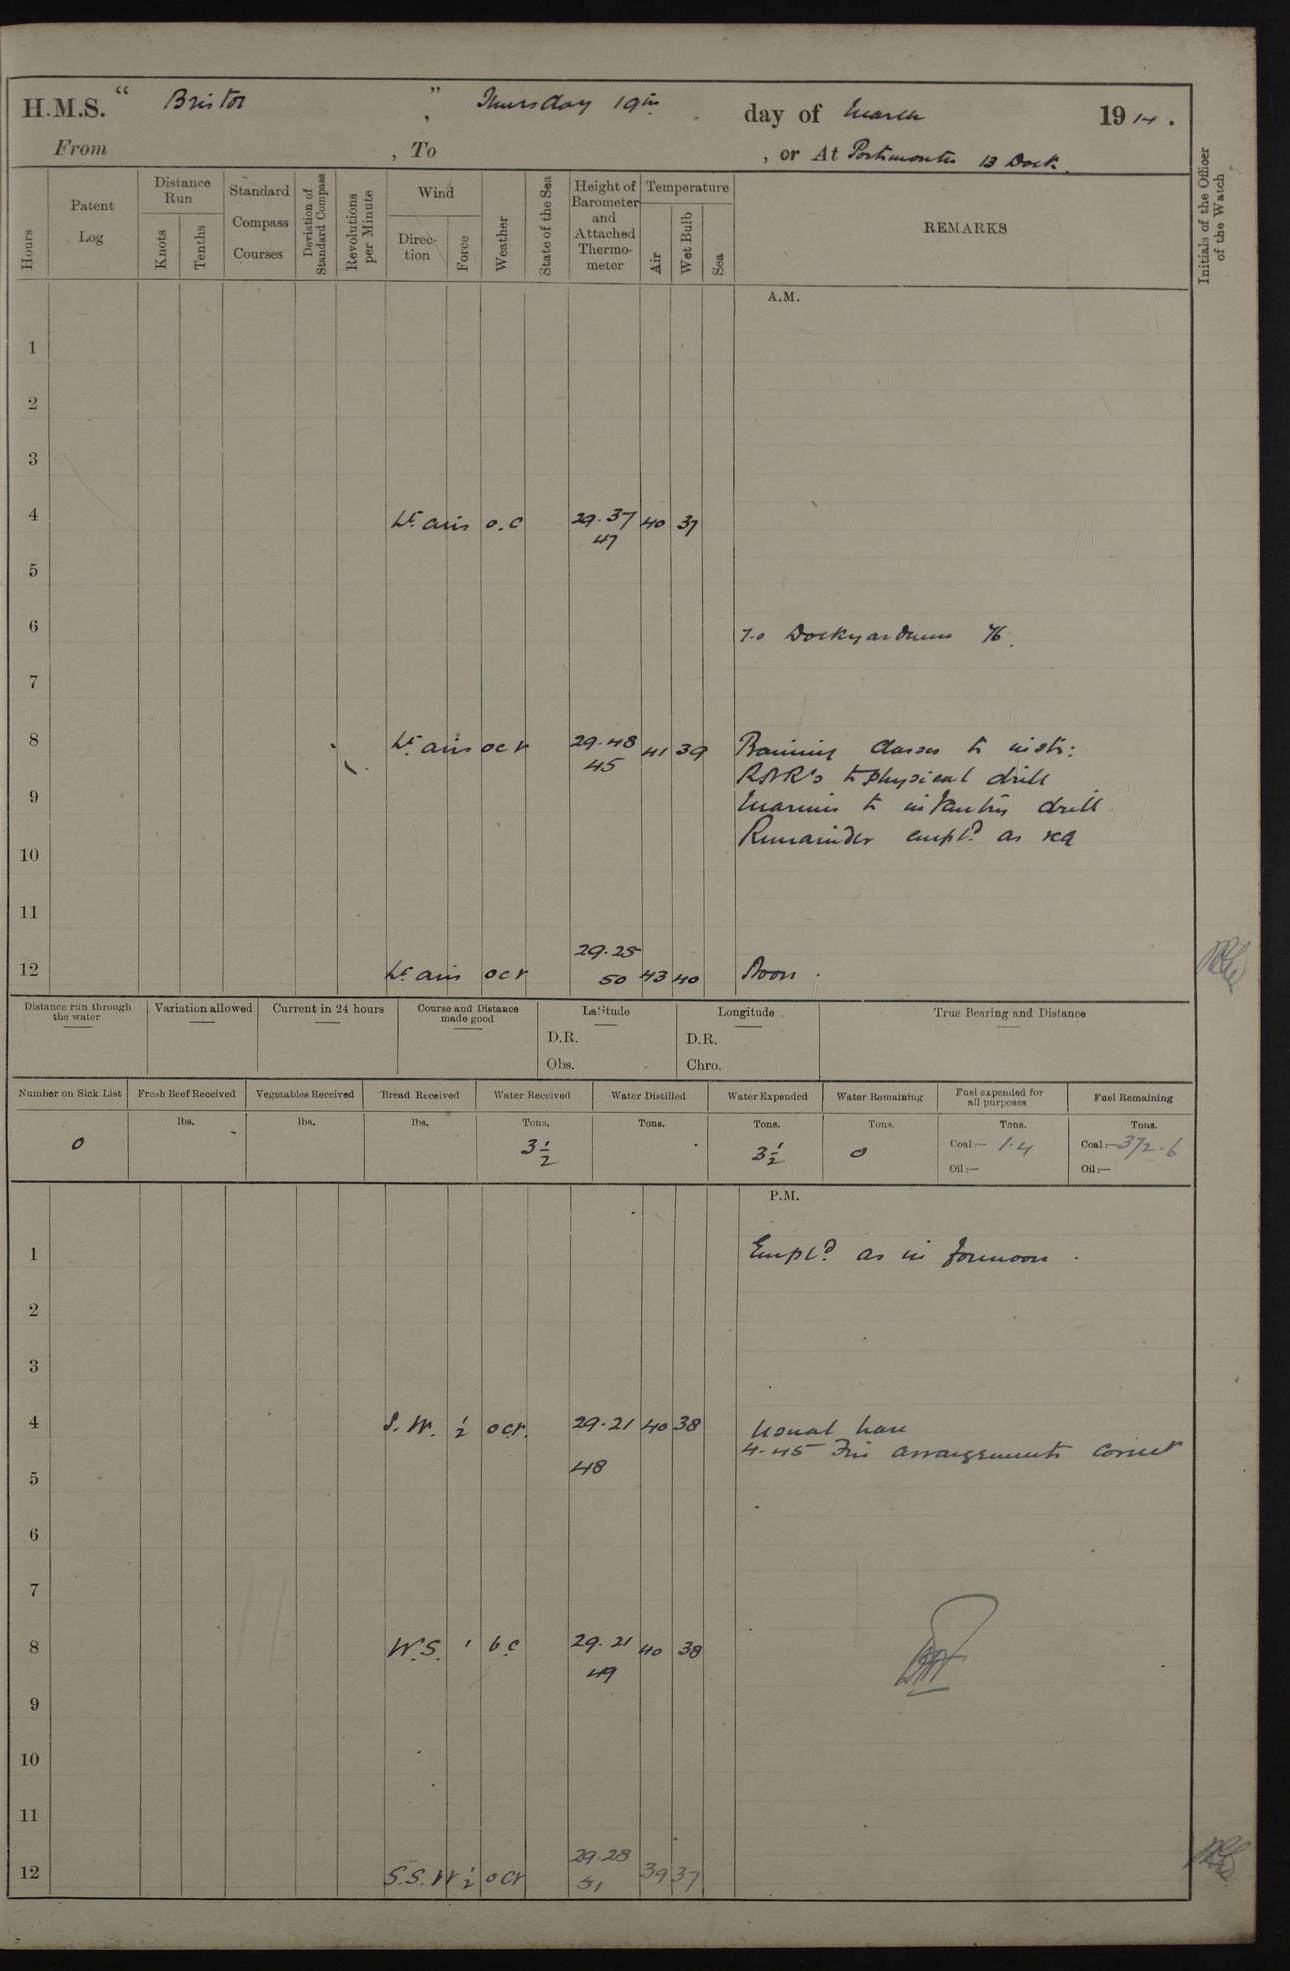 H.M.S. “ Bristol ” , Thursday 19th day of March 1914.
From , To , or At Portsmouth 13 Dock.
Hours
Patent Log
Distance Run
Knots
Tenths
Standard Compass Courses
Deviation of Standard Compass
Revolutions per Minute
Wind
Direction
Force
Weather
State of the Sea
Height of Barometer and Attached Thermometer
Temperature
Air
Wet Bulb
Sea
REMARKS
Initials of the Officer of the Watch
A.M.
1
2
3
4 Lt airs o.c 29.37 40 37
47
5
6
7.0 Dockyardmen
7
8 Lt airs ocr 29.48 41 39 Training classes to instr:
45
RNR's to physical drill
9 Marines to infantry drill
Remainder empld as req
10
11
29.25
12 Lt airs ocr 50 43 40 Noon.
Distance run through the water
Variation allowed
Current in 24 hours
Course and Distance made good
Latitude
D.R.
Obs.
Longitude
D.R.
Chro.
True Bearing and Distance
Number on Sick List
Fresh Beef Received
Vegetables Received
Bread Received
Water Received
Water Distilled
Water Expended
Water Remaining
Fuel expended for all purposes
Fuel Remaining
lbs. lbs. lbs. Tons. Tons. Tons. Tons. Tons. Tons.
0 3 1/2 3 1/2 0 Coal:— 1.4 Coal:— 372.6
Oil:— Oil:—
P.M.
1 Empld as in forenoon.
2
3
4 S.W. 1/2 ocr. 29.21 40 38 Usual leave
4.45 Fire arrangements correct
48
5
6
7
8 W.S. 1 bc 29.21 40 38
49
9
10
11
29.28
12 S.S.W 1/2 ocr 51 39 37